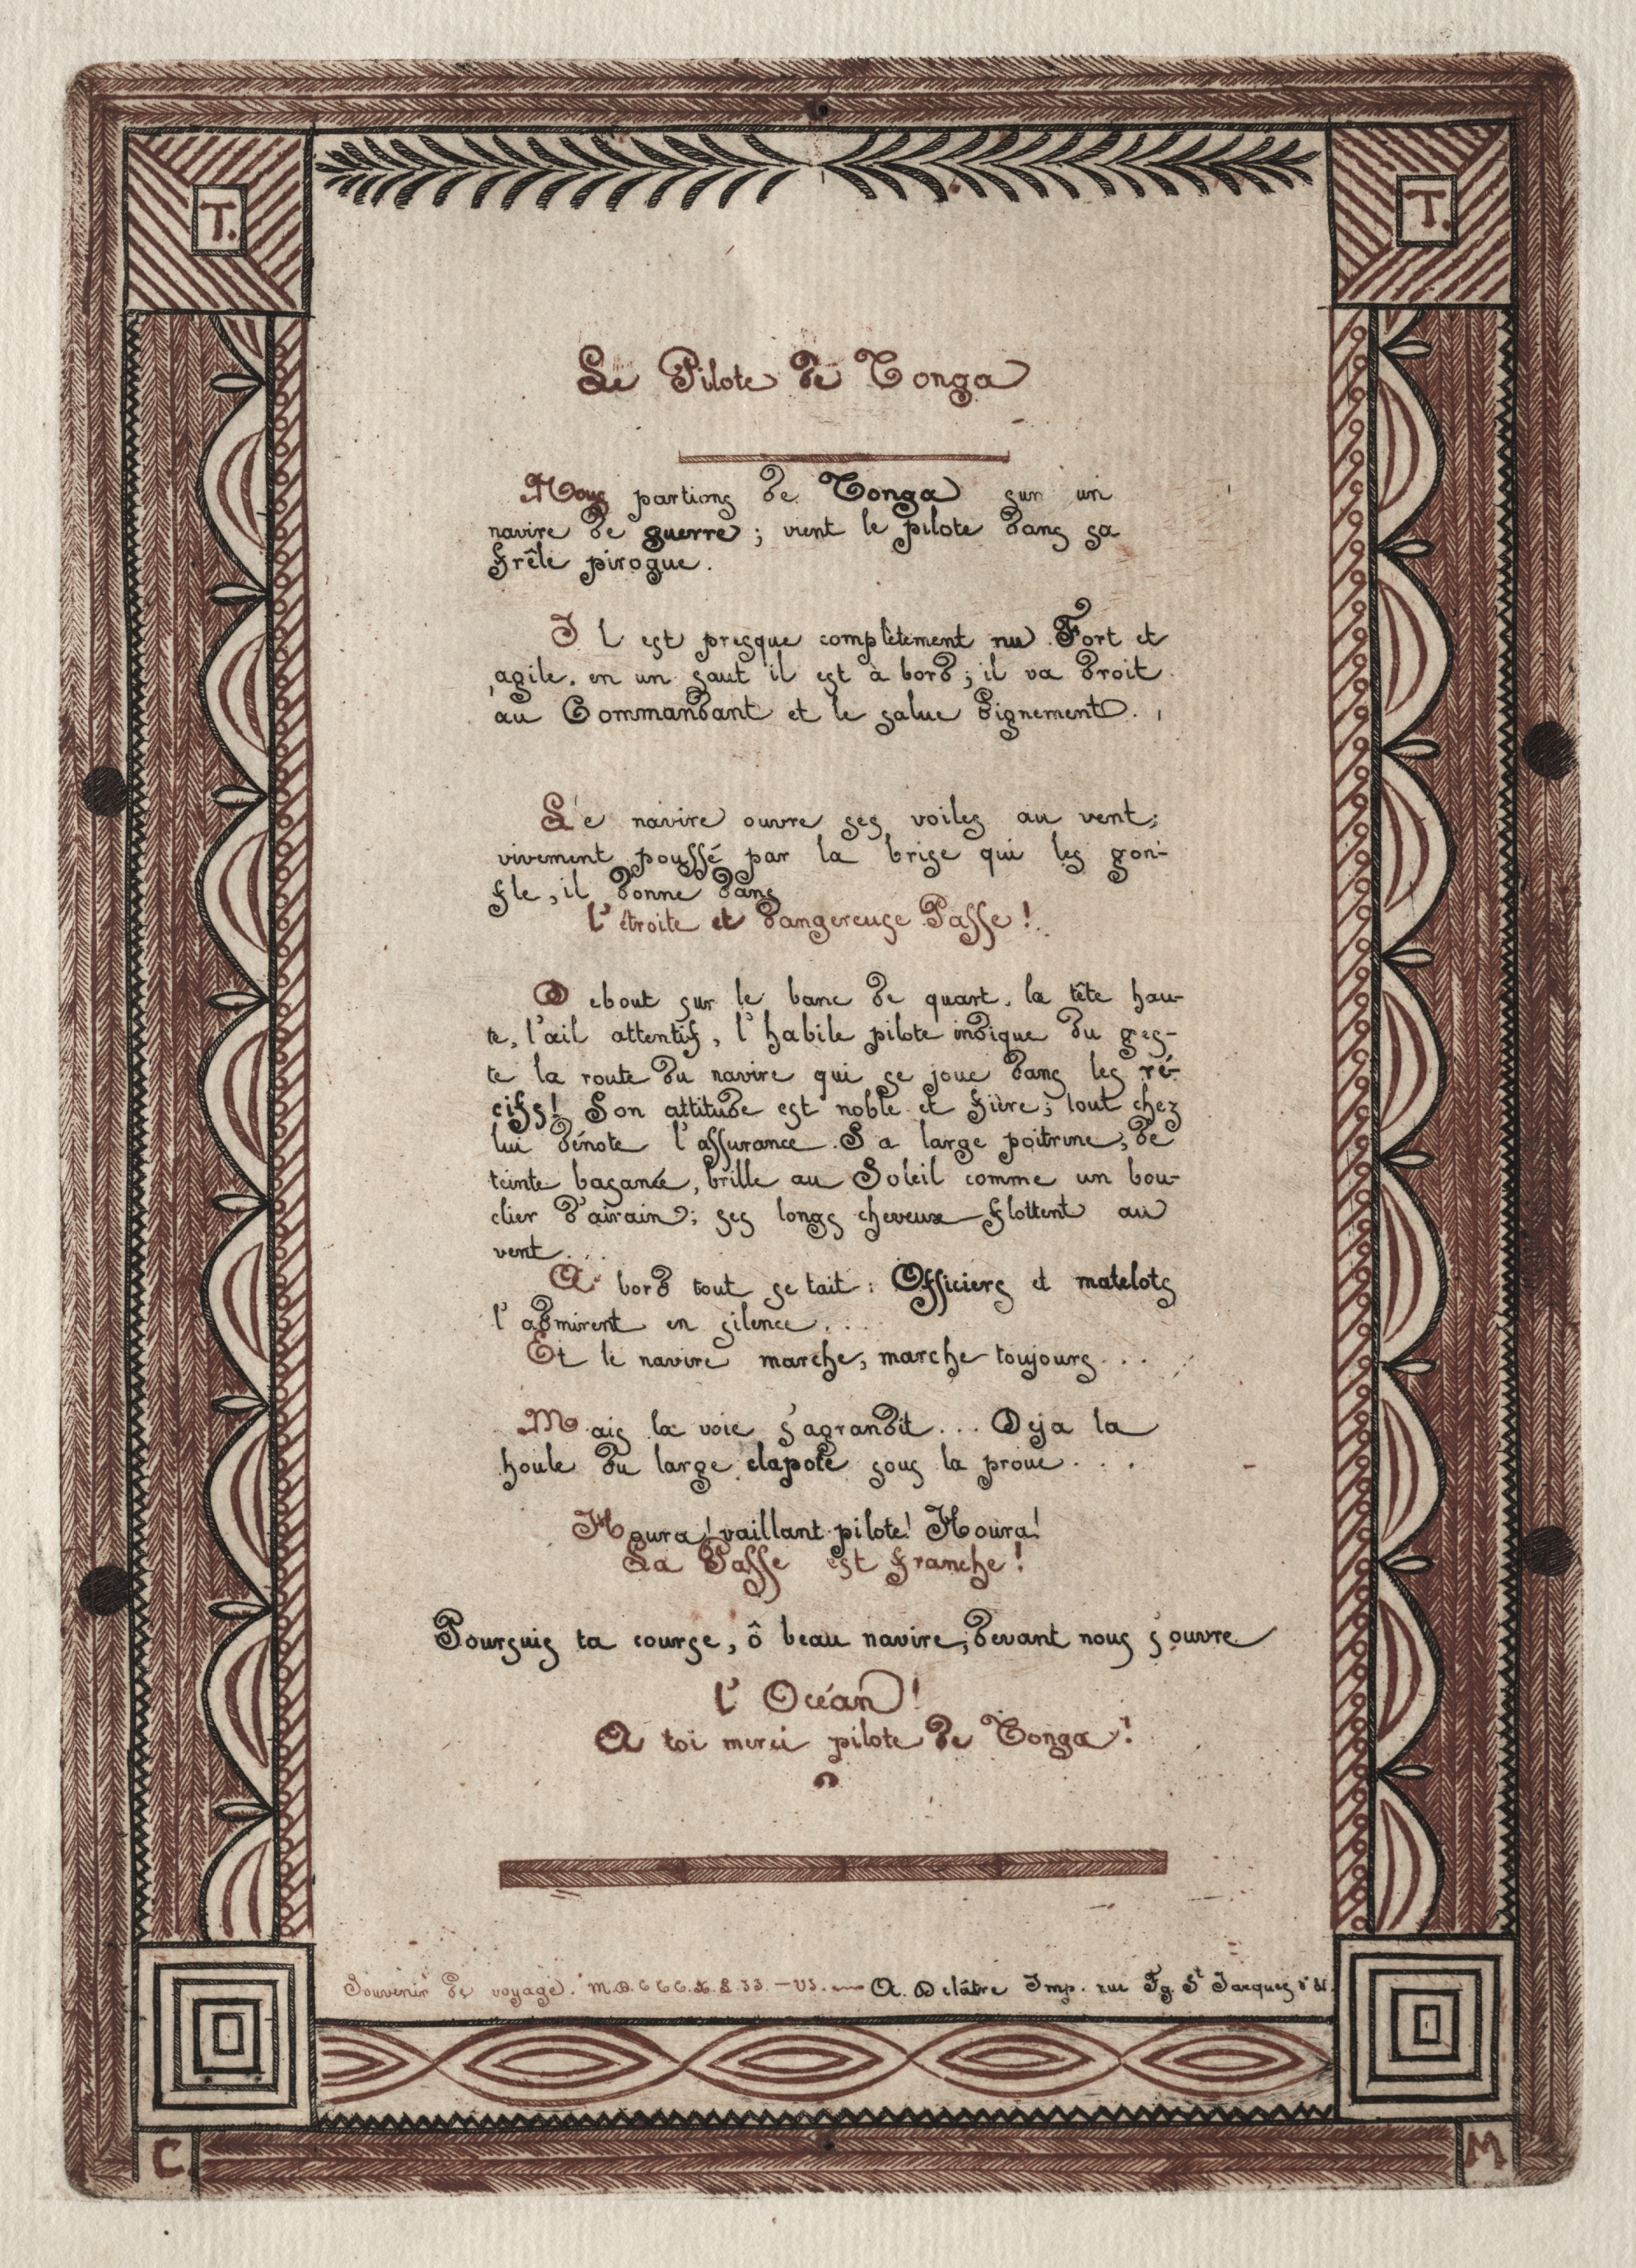 T. T.
Le Pilote de Tonga
Nous partions de Tonga sur un
navire de guerre ; vient le pilote dans sa
frêle pirogue.
Il est presque complètement nu. Fort et
agile, en un saut il est à bord ; il va droit
au Commandant et le salue dignement.
Le navire ouvre ses voiles au vent;
vivement poussé par la brise qui les gon-
fle, il donne dans
l'étroite et dangereuse Passe !
Debout sur le banc de quart, la tête hau-
te, l'œil attentif, l'habile pilote indique du ges-
te la route du navire qui se joue dans les ré-
cifs! Son attitude est noble et fière ; tout chez
lui dénote l'assurance. Sa large poitrine, de
teinte basanée, brille au Soleil comme un bou-
clier d'airain ; ses longs cheveux flottent au
vent...
A bord tout se tait : Officiers et matelots
l'admirent en silence...
Et le navire marche, marche toujours...
Mais la voie s'agrandit... Deja la
houle du large clapote sous la proue...
Houra ! vaillant pilote! Houra!
La Passe est franche !
Poursuis ta course, ô beau navire, devant nous s'ouvre
l'Océan !
A toi merci pilote de Tonga !
Souvenir de voyage. A. Delâtre Imp. rue Fg. St Jacques
C M